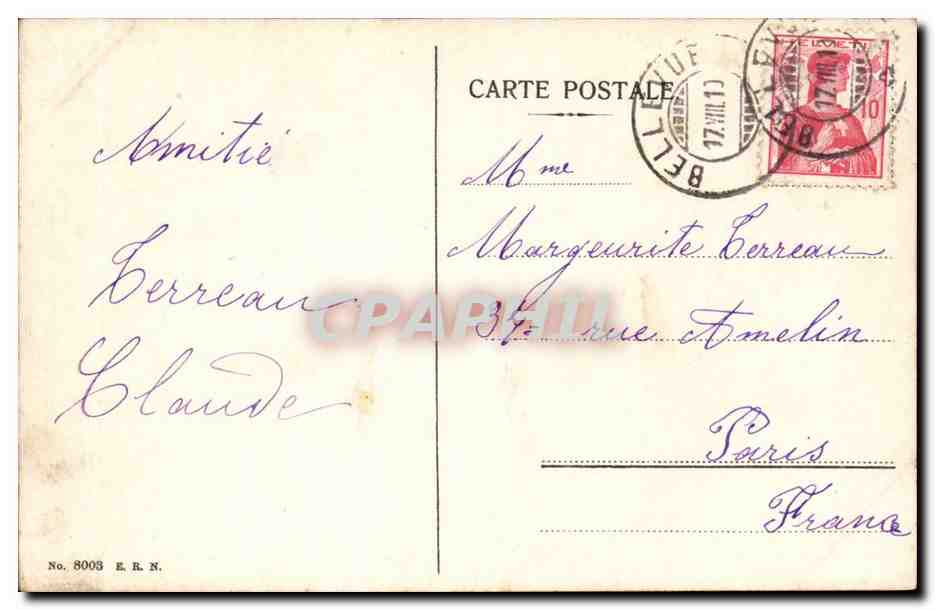 CARTE POSTALE
BELLEVUE
17.VIII.10
HELVETIA
10
Amitié
Terreau
Claude
Mme
Margeurite Terreau
34 rue Amelin
Paris
France
CPAPHIL
No. 8003 E. R. N.